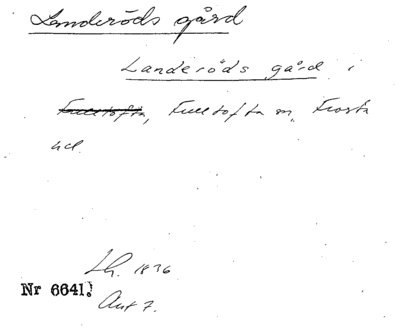 Landeröds gård
Landeröds gård i
Fulltofta, Fulltofta sn, Frosta
hd.
Lh. 1896
Nr 6641.
Ant 7.